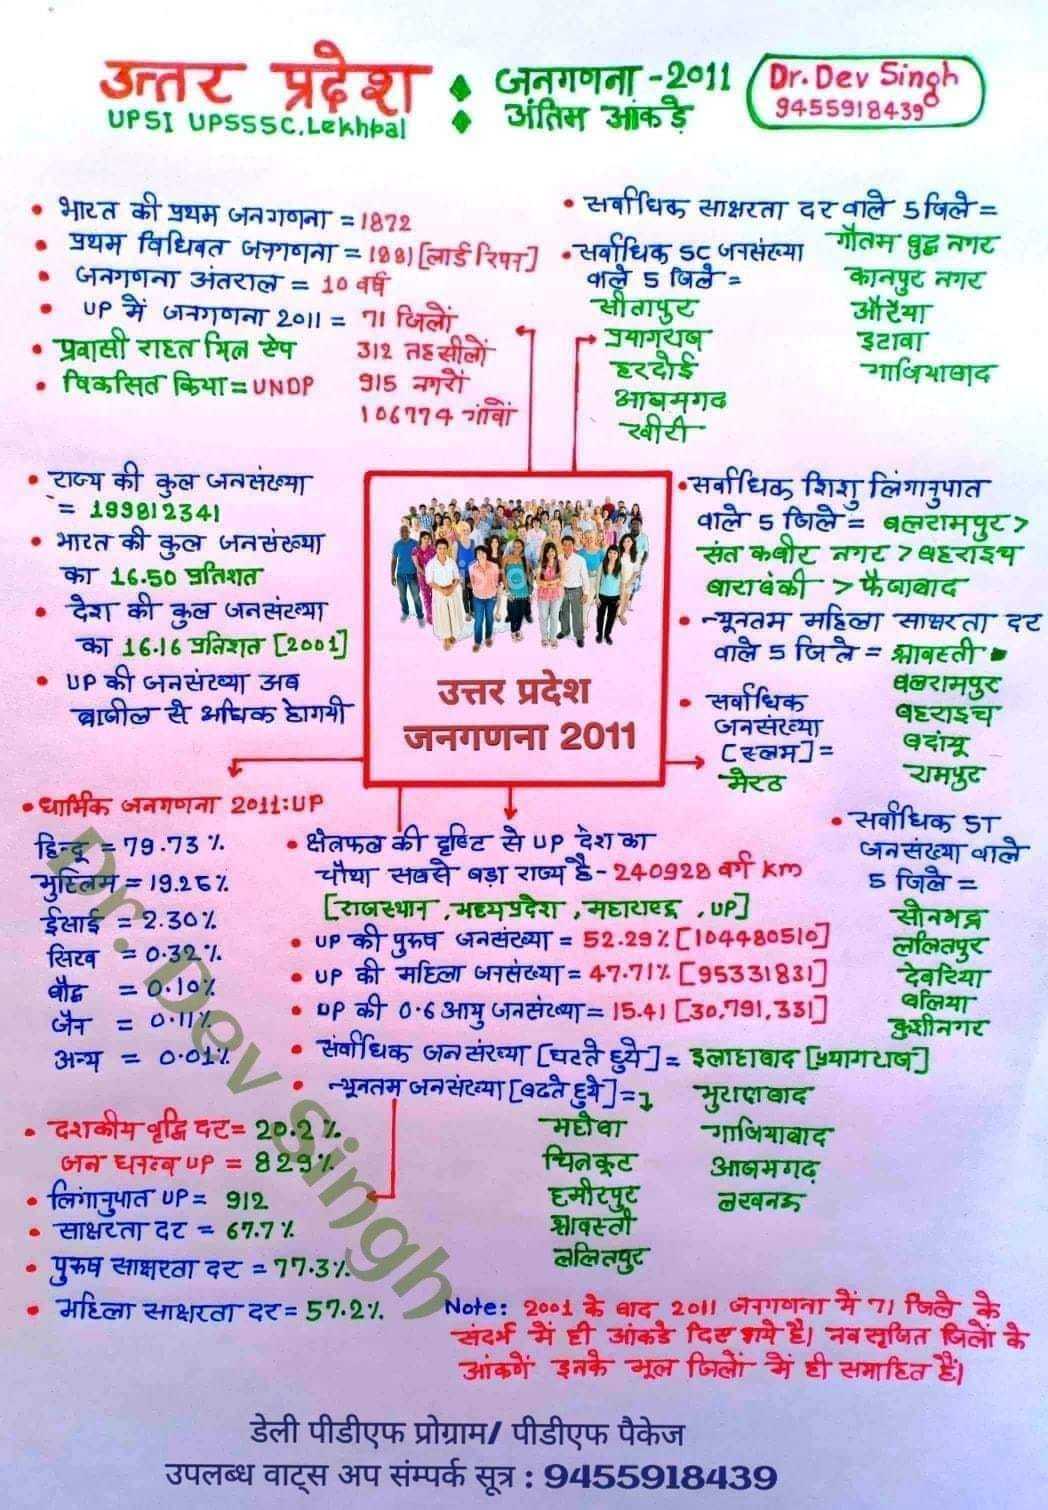 उत्तर प्रदेश
UPSI UPSSSC, Lekhpal
जनगणना -2011
अंतिम आंकड़े
Dr. Dev Singh
9455918439
• भारत की प्रथम जनगणना = 1872
• प्रथम विधिवत जनगणना = 1881 [लार्ड रिपन]
• जनगणना अंतराल = 10 वर्ष
• UP में जनगणना 2011 = 71 जिलों
312 तहसीलों
915 नगरों
106774 गांवों
• प्रवासी राहत मित्र ऐप
• विकसित किया = UNDP
• सर्वाधिक साक्षरता दर वाले 5 जिले =
गौतम बुद्ध नगर
कानपुर नगर
औरैया
इटावा
गाजियाबाद
• सर्वाधिक SC जनसंख्या
वाले 5 जिले =
सीतापुर
प्रयागराज
हरदोई
आजमगढ
खीरी
• राज्य की कुल जनसंख्या
= 199812341
• भारत की कुल जनसंख्या
का 16.50 प्रतिशत
• देश की कुल जनसंख्या
का 16.16 प्रतिशत [2001]
• UP की जनसंख्या अब
ब्राजील से अधिक होगयी
उत्तर प्रदेश
जनगणना 2011
• सर्वाधिक शिशु लिंगानुपात
वाले 5 जिले = बलरामपुर >
संत कबीर नगर > बहराइच
बाराबंकी > फैजाबाद
• न्यूनतम महिला साक्षरता दर
वाले 5 जिले = श्रावस्ती
बलरामपुर
बहराइच
बदांयू
रामपुर
• सर्वाधिक
जनसंख्या
[स्लम] =
मेरठ
• सर्वाधिक ST
जनसंख्या वाले
5 जिले =
सोनभद्र
ललितपुर
देवरिया
बलिया
कुशीनगर
• धार्मिक जनगणना 2011:UP
हिन्दू = 79.73 %
मुस्लिम = 19.26%
ईसाई = 2.30%
सिख = 0.32%
बौद्ध = 0.10%
जैन = 0.11%
अन्य = 0.01%
• क्षेत्रफल की दृष्टि से UP देश का
चौथा सबसे बड़ा राज्य है - 240928 वर्ग Km
[राजस्थान, मध्यप्रदेश, महाराष्ट्र, UP]
• UP की पुरुष जनसंख्या = 52.29% [104480510]
• UP की महिला जनसंख्या = 47.71% [95331831]
• UP की 0-6 आयु जनसंख्या = 15.41 [30,791,331]
• सर्वाधिक जनसंख्या [घटते हुये] = इलाहाबाद [प्रयागराज]
मुरादाबाद
गाजियाबाद
आजमगढ़
लखनऊ
• न्यूनतम जनसंख्या [बढते हुये] =
महोबा
चित्रकूट
हमीरपुर
श्रावस्ती
ललितपुर
• दशकीय वृद्धि दर = 20.2 %
जन घनत्व UP = 829%
• लिंगानुपात UP = 912
• साक्षरता दर = 67.7%
• पुरुष साक्षरता दर = 77.3%
• महिला साक्षरता दर = 57.2%
Note: 2001 के बाद 2011 जनगणना में 71 जिले के
संदर्भ में ही आंकडे दिए गये है। नव सृजित जिलों के
आंकडें इनके मूल जिलों में ही समाहित है।
Dr. Dev Singh
डेली पीडीएफ प्रोग्राम/ पीडीएफ पैकेज
उपलब्ध वाट्स अप संम्पर्क सूत्र : 9455918439